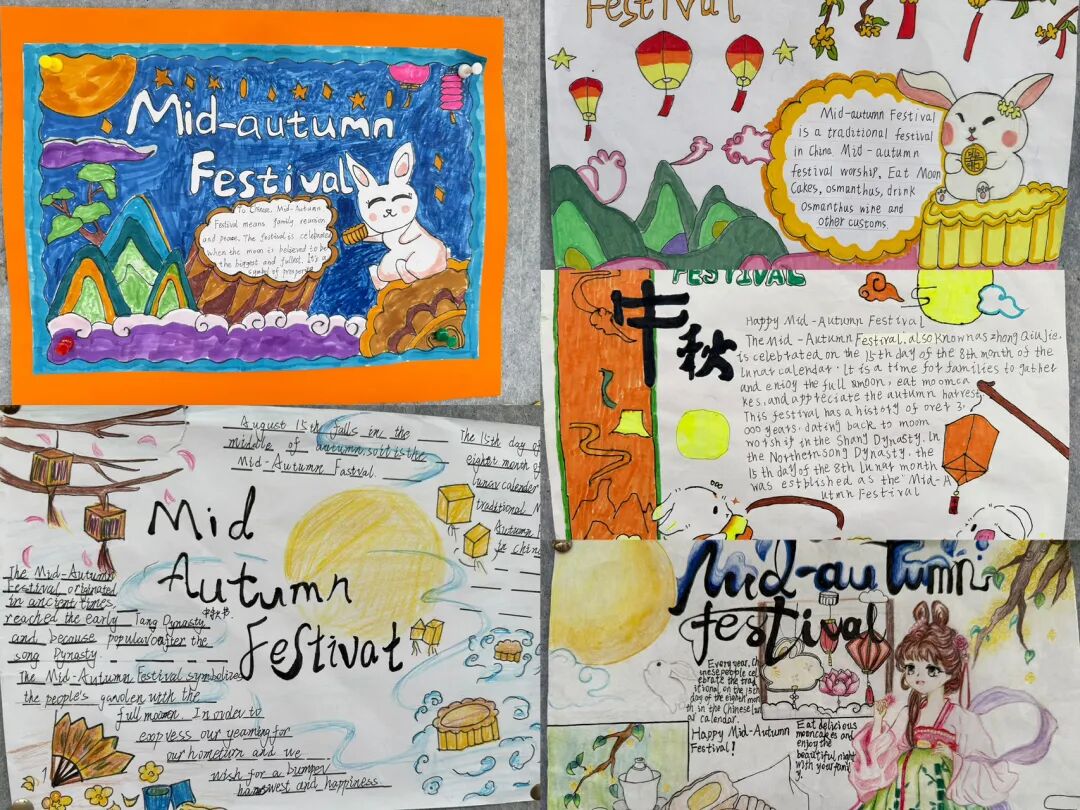 Mid-autumn
Festival
To Chinese, Mid-Autumn
Festival means family reunion
and peace. The festival is celebrated
when the moon is believed to be
the biggest and fullest. It's a
symbol of prosperity
Festival
Mid-autumn Festival
is a traditional festival
in China Mid-autumn
festival worship, Eat Moon
Cakes, osmanthus, drink
Osmanthus wine and
other customs.
FESTIVAL
中秋
Happy Mid-Autumn Festival
The Mid-Autumn Festival, also known as zhong QiuJie,
is celebrated on the 15th day of the 8th month of the
lunar calendar. It is a time for families to gather
and enjoy the full moon, eat moomca
kes, and appreciate the autumn harvest
This festival has a history of over 3,
000 years, dating back to moom
worship in the Shang Dynasty. In
the Northern song Dynasty, the
15th day of the 8th lunar month
was established as the Mid-A
utmn Festival
August 15th falls in the
middle of autumn so it is the
Mid-Autumn Fastval.
The 15th day of
eight month of
lunar calender
traditional M
Autumn
in china
Mid
Autumn
Festival
中秋节
The Mid-Autumn
Festival originated
in ancient times,
reached the early Tang Dynasty
and because popular after the
song Dynasty.
The Mid-Autumn Festival symbolizes
the people's with the
full moon. In order to
express our yearning for
our hometown and we
wish for a bumper
harwest and happiness
Mid-autumn
festival
Every year, Ch
inese people cel
ebrate the trad
itional on the 15th
day of the eighth mon
th in the Chinese lun
ar calendar.
Happy Mid-Autumn
Festival!
Eat delicious
mooncakes and
enjoy the
beautiful night
with your famil
y.